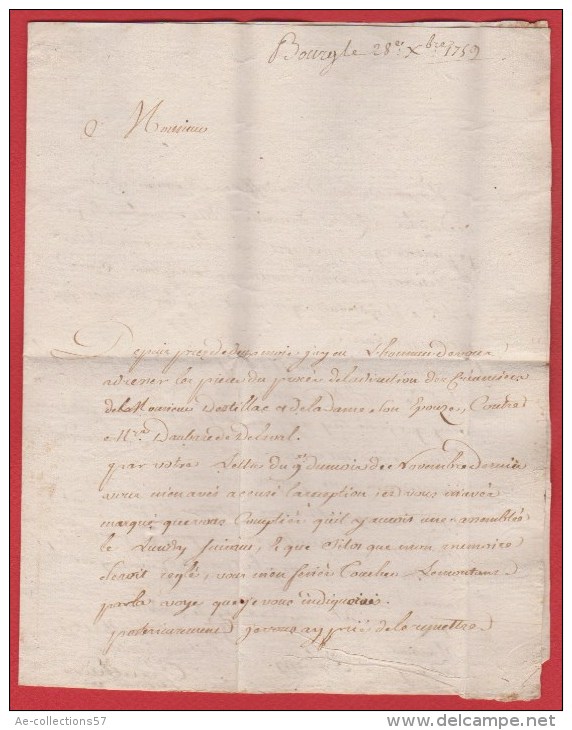 Bourg le 28e Xbre 1759
Monsieur
Depuis près de deux mois jay eu L'honneur de vous
adresser les pieces du procès de la direction des Créanciers
de la Monsieur Destillac & de la Dame son Epouse, Contre
Mrs Daubree de Delaval.
par votre Lettre du 9e du mois de Novembre dernier
vous m'en avés accusé la reception et vous m'avés
marqué que vous Comptiés qu'il y auroit une assemblée
le Lundy suivant, & que sitot que mon memoire
seroit reglé, vous m'en feriés Toucher Le montant
par la voye que je vous indiquois.
posterieurement je vous ay prié de la remettre
Ae-collections57
delcampe.net